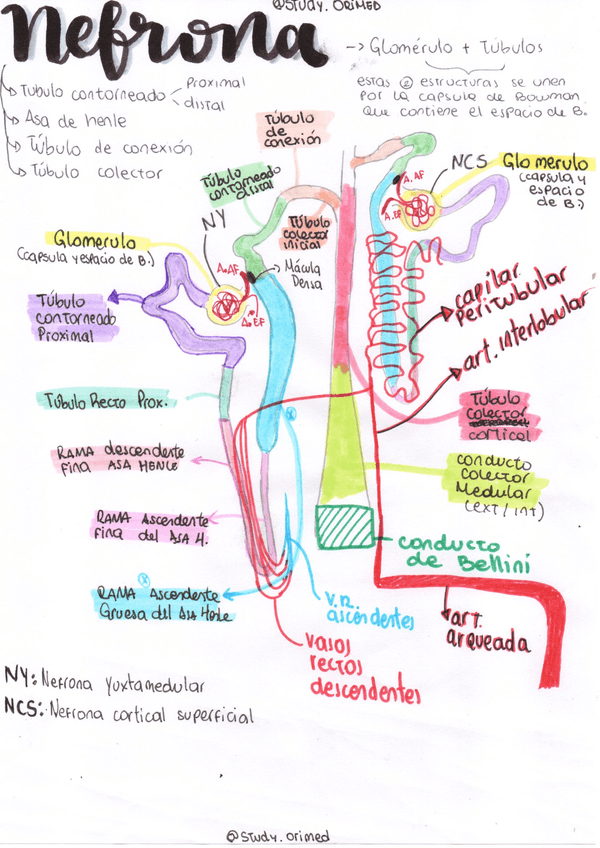 @STUDY.ORIMED
Nefrona
-> Glomérulo + Túbulos
estas ② estructuras se unen
por la capsula de Bowman
que contiene el espacio de B.
Túbulo contorneado
Proximal
distal
Asa de henle
Túbulo de conexión
Túbulo colector
Túbulo
de
conexión
Túbulo
contorneado
distal
Túbulo
colector
inicial
NY
Glomerulo
(capsula y espacio de B.)
A.AF
A.EF
Mácula
Densa
NCS
Glomerulo
(capsula y
espacio
de B.)
A.AF
A.EF
Túbulo
contorneado
Proximal
capilar
peritubular
art. interlobular
Túbulo Recto Prox.
Túbulo
colector
cortical
RAMA descendente
fina ASA HENLE
conducto
colector
Medular
(ext/int)
RAMA Ascendente
fina del ASA H.
conducto
de Bellini
RAMA Ascendente
Gruesa del Asa Henle
V.R.
ascendentes
art.
arqueada
vasos
rectos
descendentes
NY: Nefrona yuxtamedular
NCS: Nefrona cortical superficial
@study.orimed